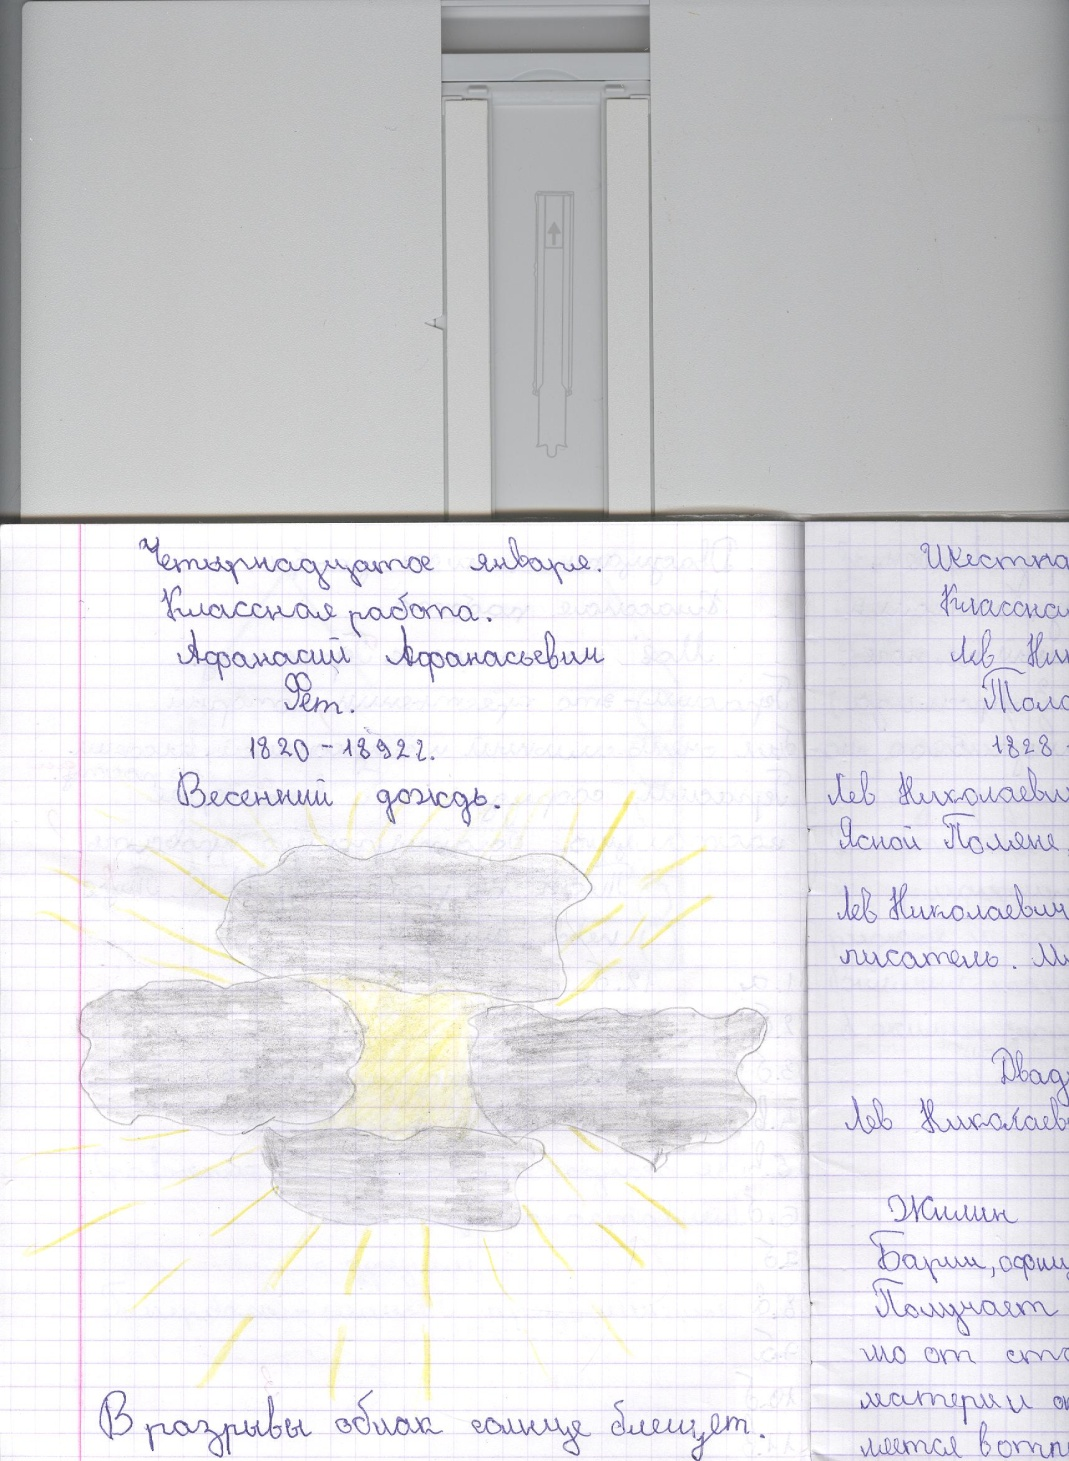 Четырнадцатое января.
Классная работа.
Афанасий Афанасьевич
Фет.
1820-1892г.
Весенний дождь.
В разрывы облак солнце блещет.
Лев
1828
Лев Николаеви
Ясной Поляне
Лев Николаевич
писатель.
Лев Николаев
Жилин
Барин,
Получает
мо от
матери и
ляется в отп